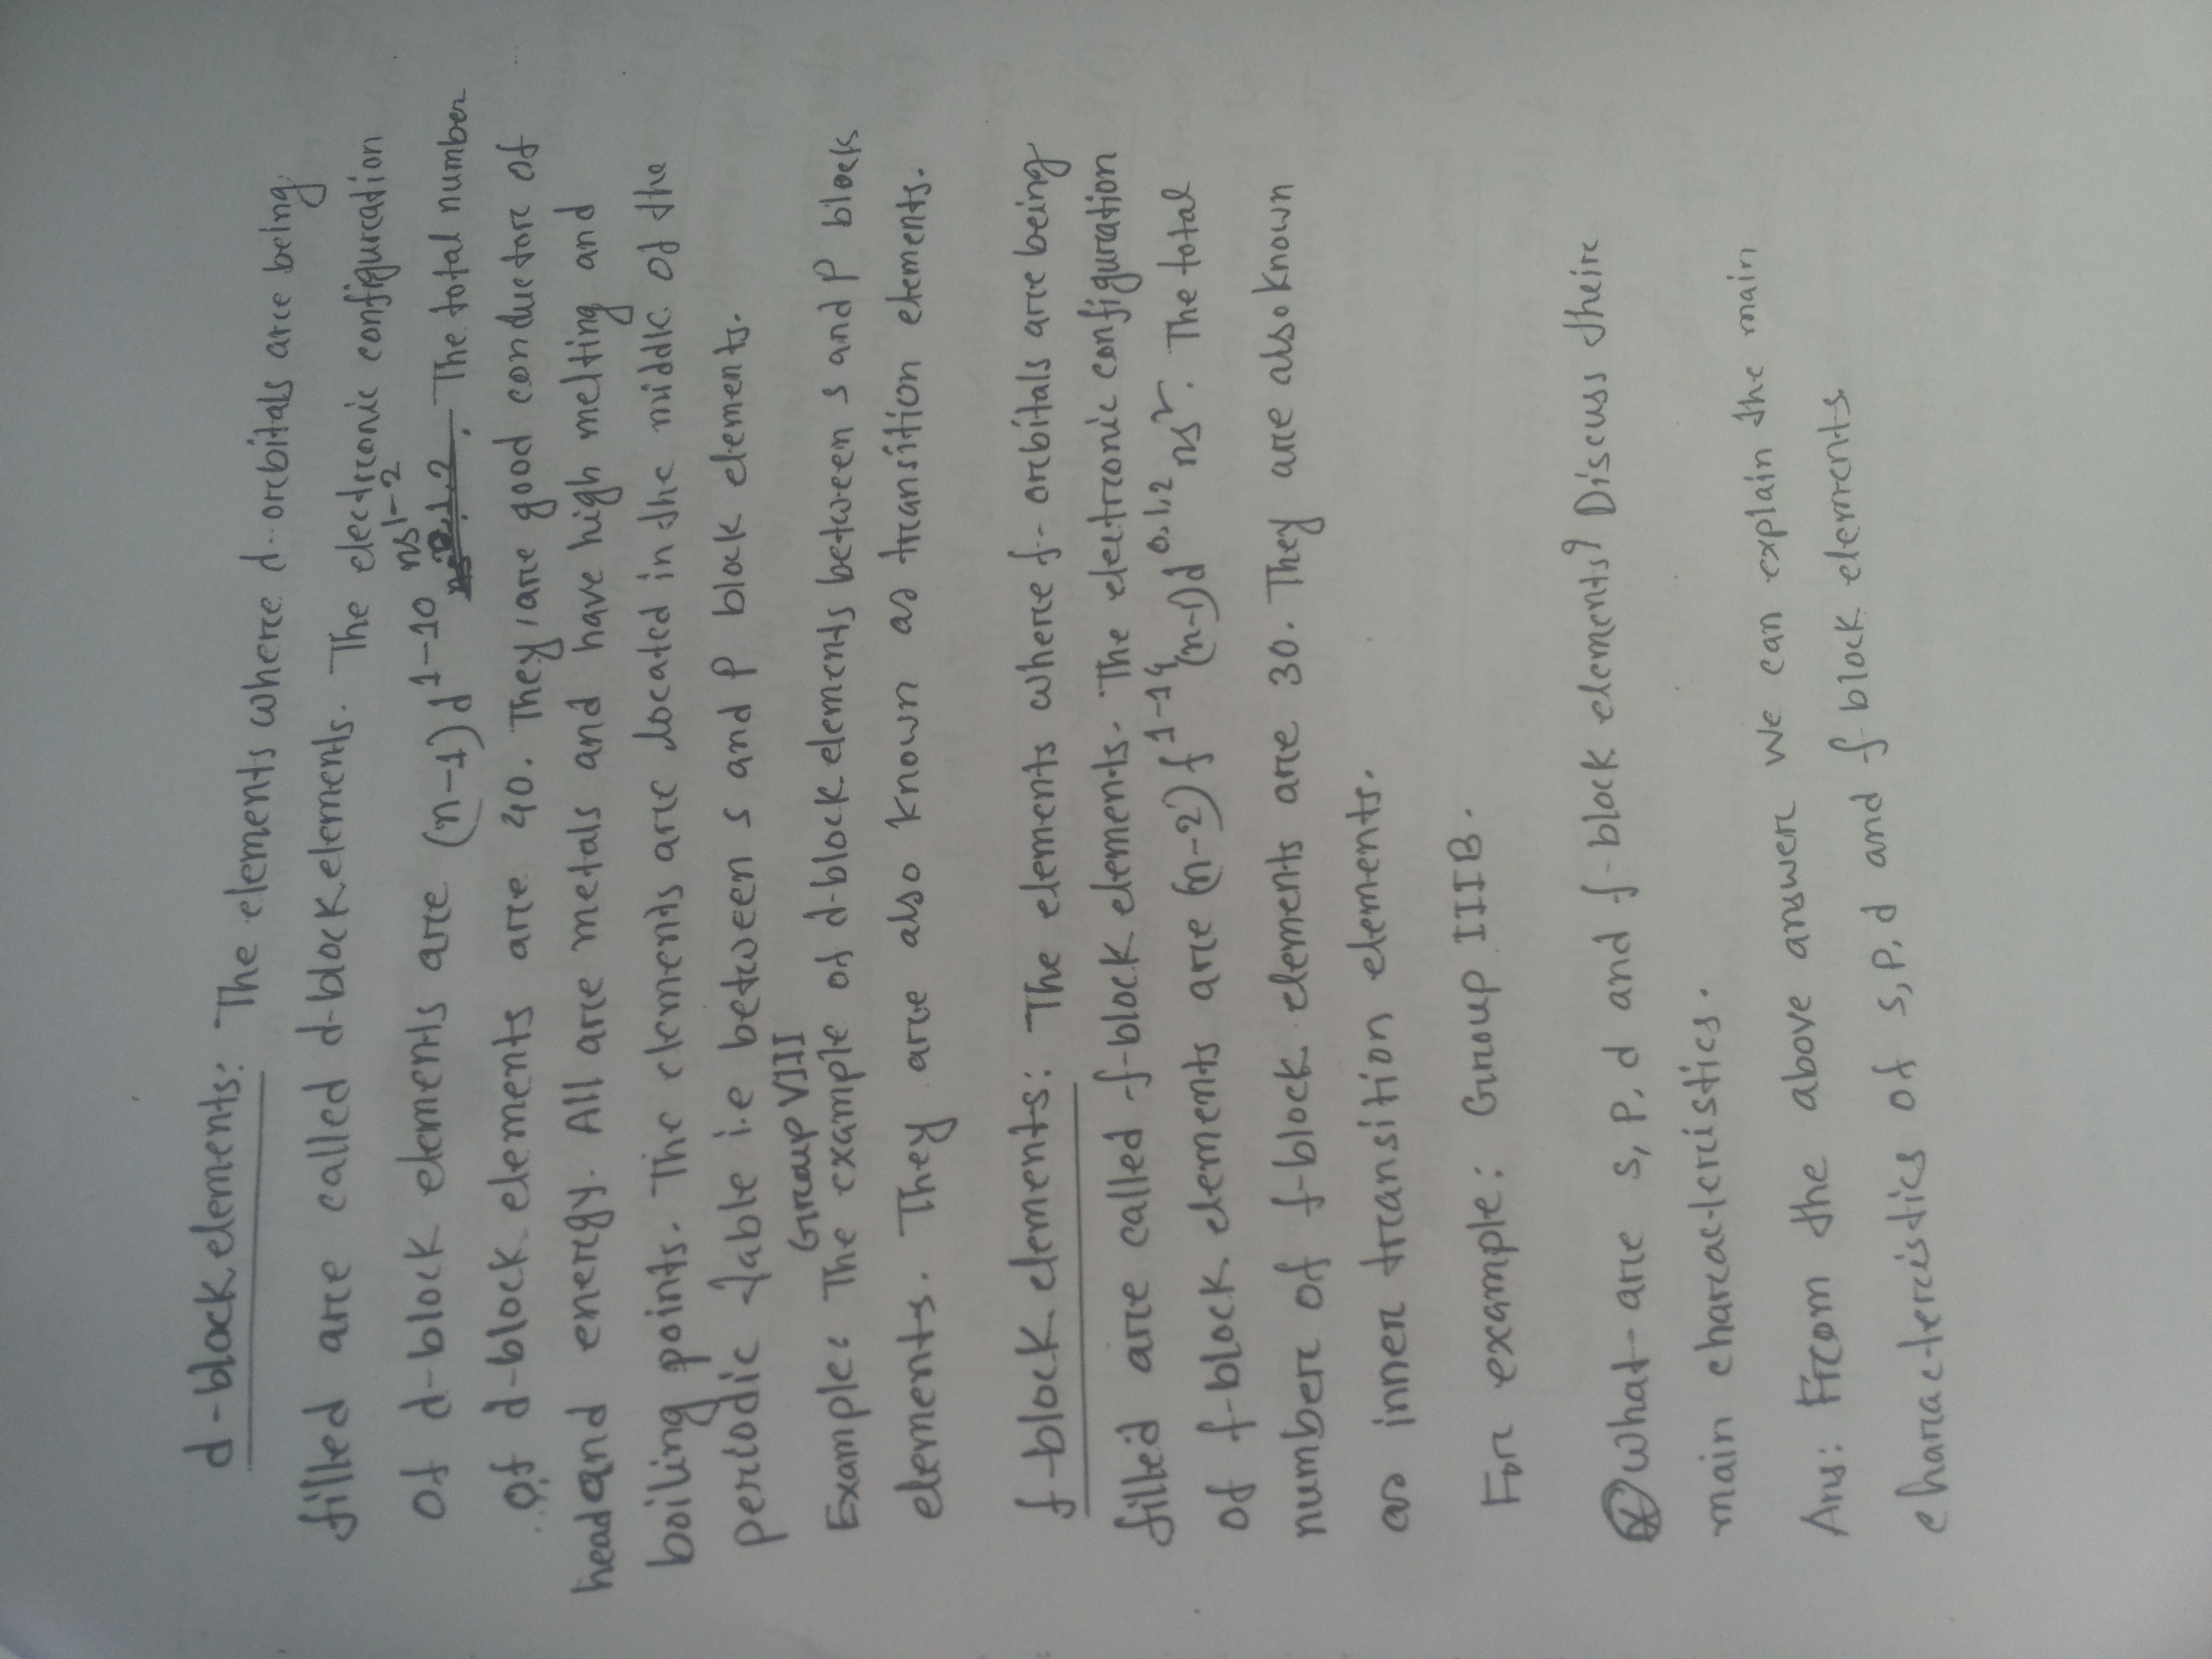 d-block elements: The elements where d-orbitals are being
filled are called d-block elements. The electronic configuration
of d-block elements are (n-1)d¹⁻¹⁰ ns¹⁻². The total number
of d-block elements are 40. They are good conductor of
head and energy. All are metals and have high melting and
boiling points. The elements are located in the middle of the
periodic table i.e between s and p block elements.
Group VIII
Example: The example of d-block elements between s and p block
elements. They are also known as transition elements.
f-block elements: The elements where f-orbitals are being
filled are called f-block elements. The electronic configuration
of f-block elements are (n-2)f¹⁻¹⁴(n-1)d⁰,¹,² ns². The total
number of f-block elements are 30. They are also known
as inner transition elements.
For example: Group IIIB.
What are s, p, d and f-block elements? Discuss their
main characteristics.
Ans: From the above answer we can explain the main
characteristics of s, p, d and f-block elements.